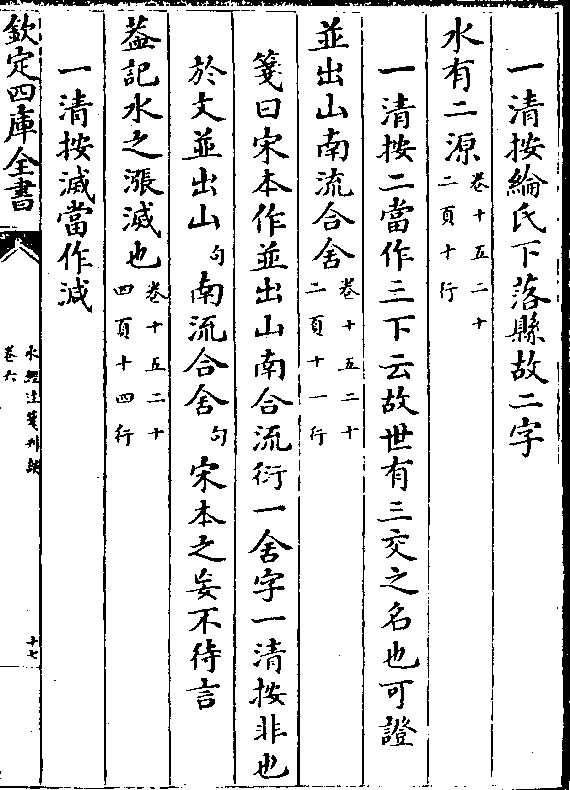 一清按綸氏下落縣故二字
水有二源卷十五二十
二頁十行
一清按二當作三下云故世有三交之名也可證
並出山南流合舍卷十五二十
二頁十一行
箋曰宋本作並出山南合流衍一舍字一清按非也
於文並出山句南流合舍句宋本之妄不待言
葢記水之漲滅也卷十五二十
四頁十四行
一清按滅當作減
欽定四庫全書
水經注箋刊誤
卷六
十七